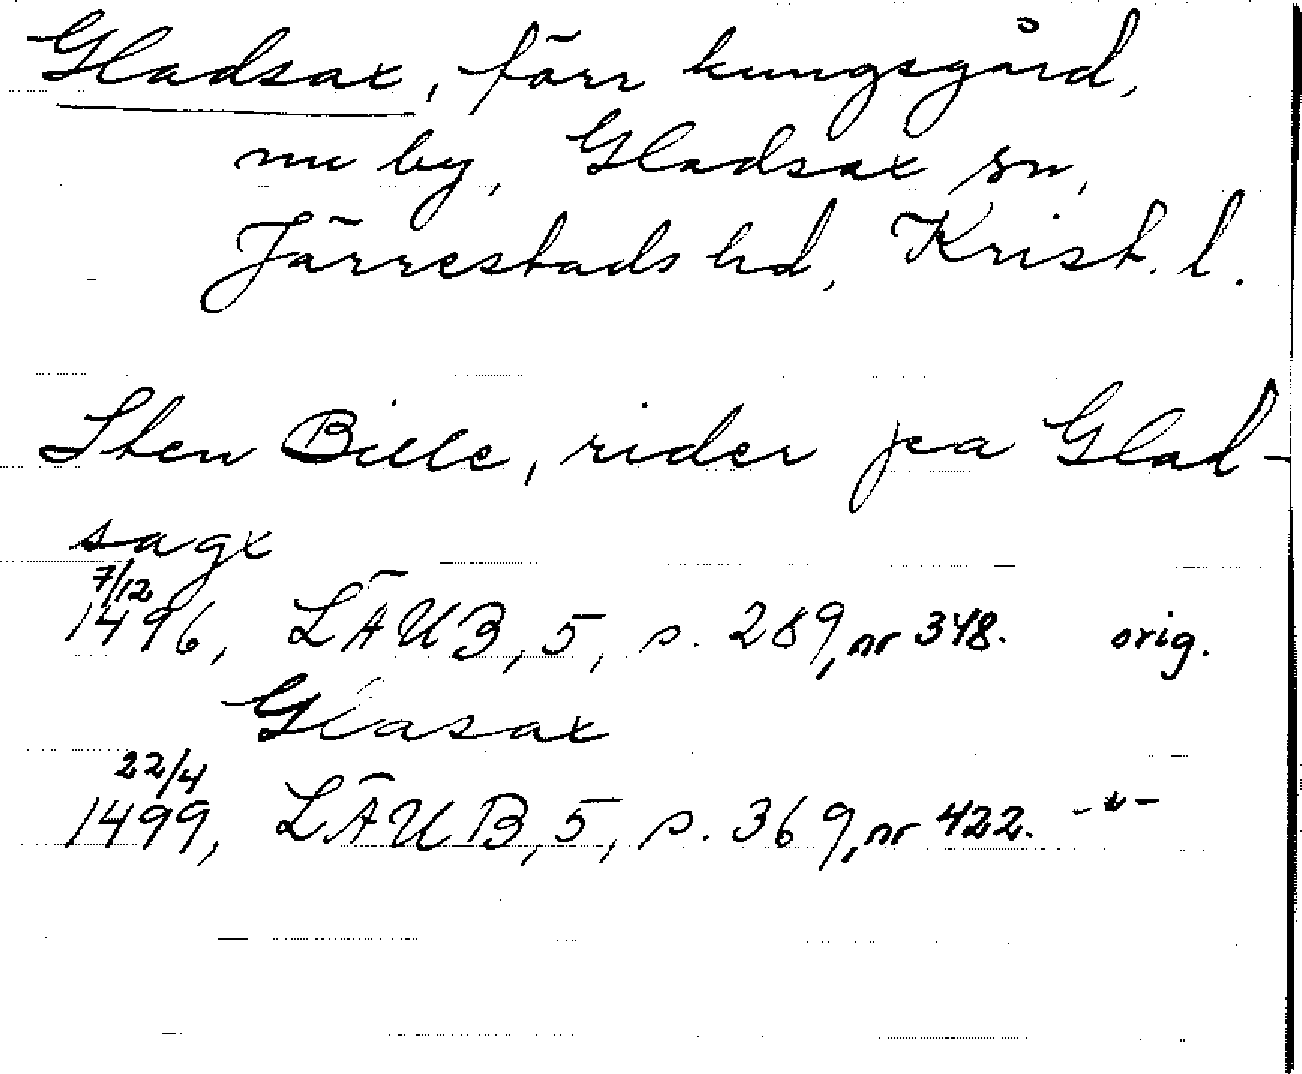 Gladsax, förr kungsgård,
nu by, Gladsax sn,
Järrestads hd, Krist. l.
Sten Bille, rider pa Glad-
sagx
7/12
1496, LÄUB, 5, s. 289, nr 348. orig.
Glasax
22/4
1499, LÄUB, 5, s. 369, nr 422. -"-